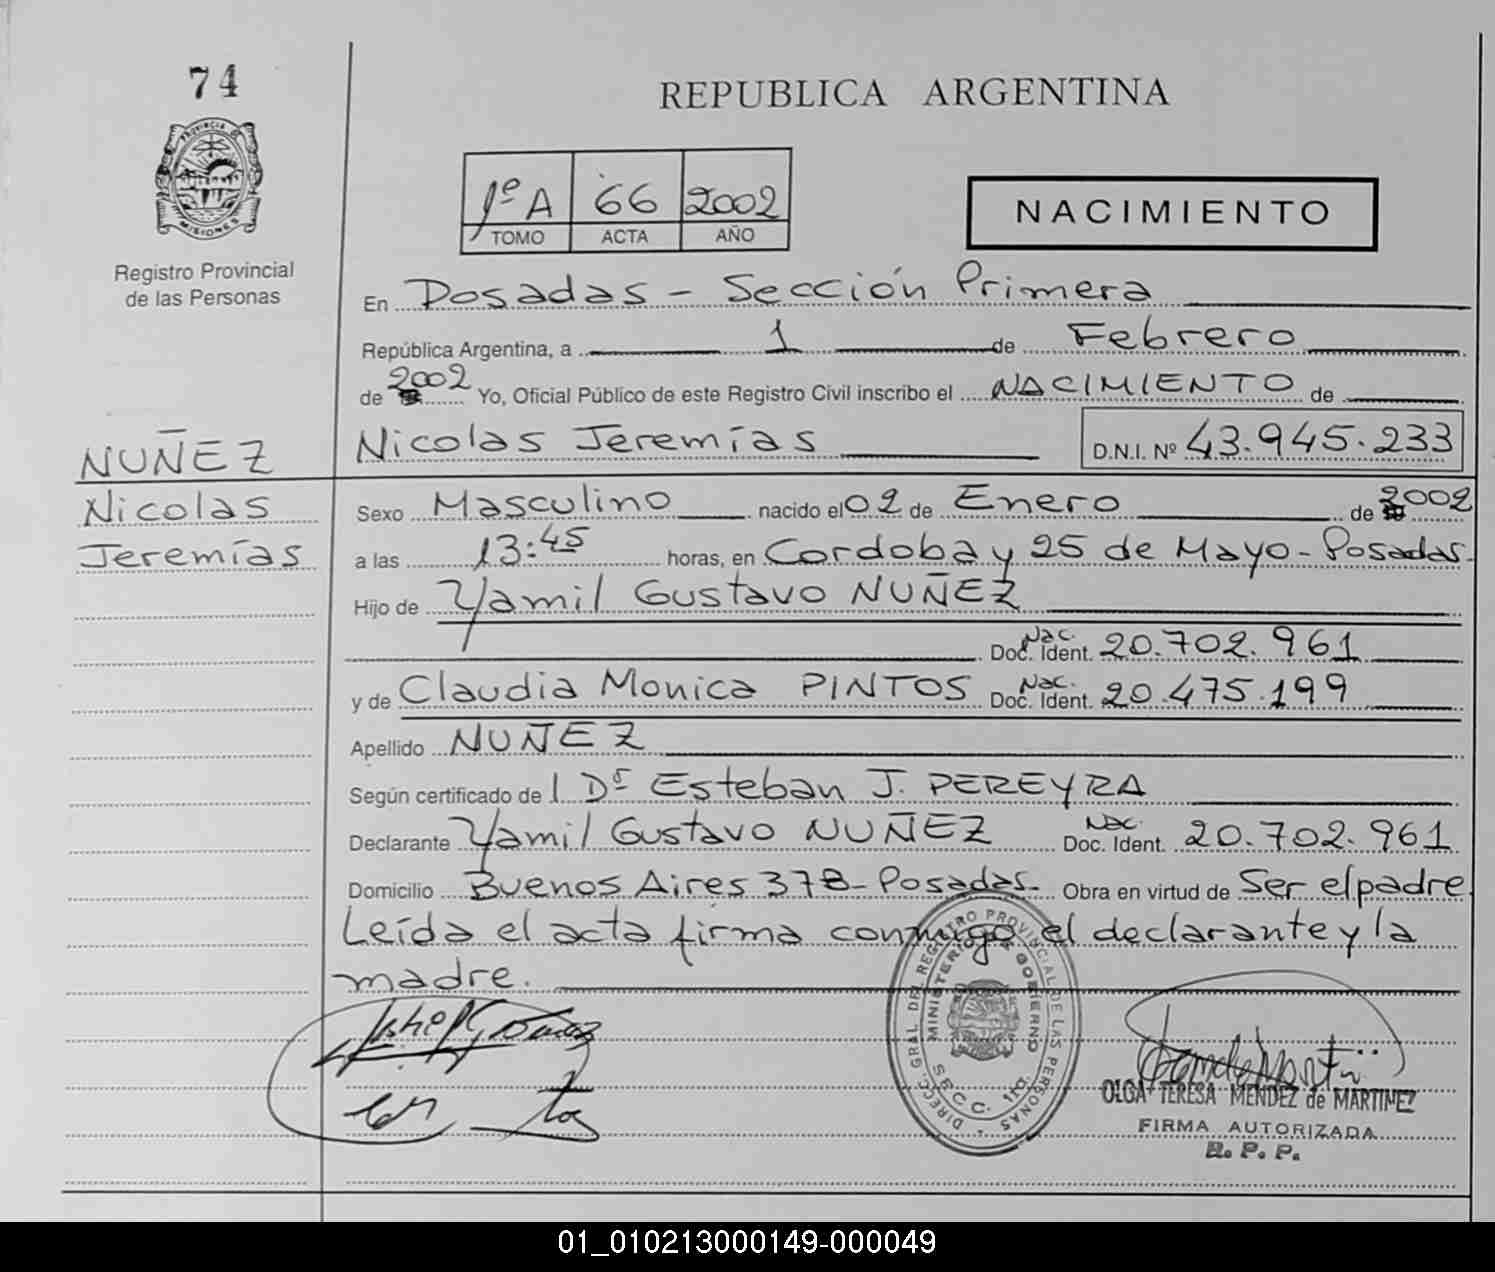 74
REPUBLICA ARGENTINA
PROVINCIA DE
MISIONES
Registro Provincial
de las Personas
1º A 66 2002
TOMO ACTA AÑO
NACIMIENTO
En Posadas - Sección Primera
República Argentina, a 1 de Febrero
de 2002 Yo, Oficial Público de este Registro Civil inscribo el NACIMIENTO de
NUÑEZ
Nicolas Jeremías D.N.I. Nº 43.945.233
Nicolas
Jeremías
Sexo Masculino nacido el 02 de Enero de 2002
a las 13:45 horas, en Cordoba y 25 de Mayo - Posadas-
Hijo de Yamil Gustavo NUÑEZ
Doc. Nac. Ident. 20.702.961
y de Claudia Monica PINTOS Doc. Nac. Ident. 20.475.199
Apellido NUÑEZ
Según certificado de l Dr Esteban J. PEREYRA
Declarante Yamil Gustavo NUÑEZ Doc. Nac. Ident. 20.702.961
Domicilio Buenos Aires 378 - Posadas- Obra en virtud de Ser el padre
Leída el acta firma conmigo el declarante y la
madre.
DIRECC. GRAL. DEL REGISTRO PROVINCIAL DE LAS PERSONAS
MINISTERIO DE GOBIERNO
SECC. 1ra.
OLGA TERESA MENDEZ de MARTINEZ
FIRMA AUTORIZADA
R. P. P.
01_010213000149-000049